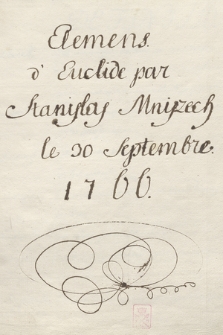 Elemens.
d' Euclide par
Stanislas Mniszech
le 30 Septembre.
1766.